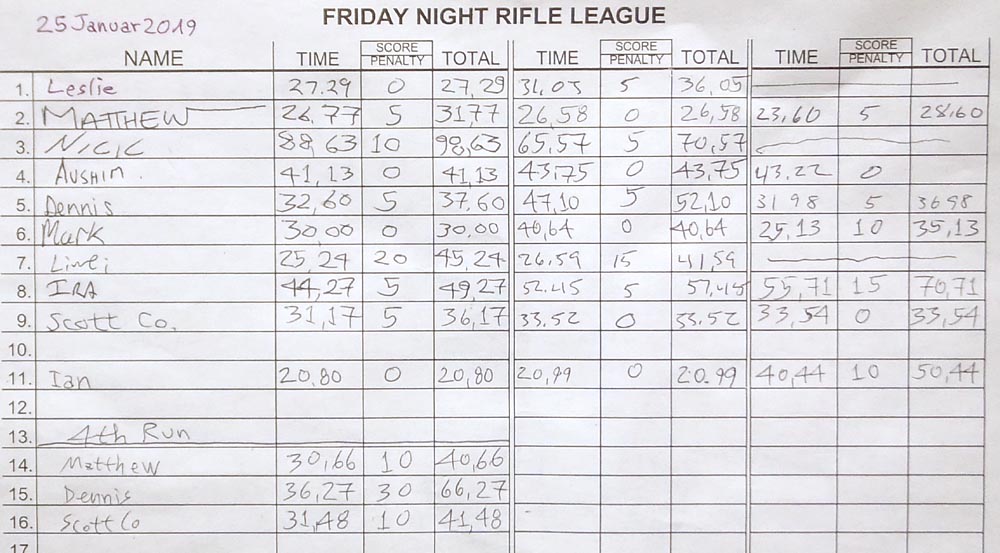 25 Januar 2019
FRIDAY NIGHT RIFLE LEAGUE
NAME TIME SCORE PENALTY TOTAL TIME SCORE PENALTY TOTAL TIME SCORE PENALTY TOTAL
1. Leslie 27.29 0 27,29 31.05 5 36,05
2. MATTHEW 26,77 5 31,77 26,58 0 26,58 23,60 5 28,60
3. 88,63 10 98,63 65,57 5 70,57
4. AUSHIN. 41,13 0 41,13 43,75 0 43,75 43,22 0
5. Dennis 32,60 5 37,60 47,10 5 52,10 31 98 5 36 98
6. Mark 30,00 0 30.00 40,64 0 40,64 25,13 10 35,13
7. 25,24 20 45,24 26,59 15 41,59
8. IRA 44,27 5 49,27 52,45 5 57,45 55,71 15 70,71
9. Scott Co. 31,17 5 36,17 33.52 0 33.52 33,54 0 33,54
10.
11. Ian 20,80 0 20,80 20,99 0 20.99 40,44 10 50,44
12.
13. 4th Run
14. Matthew 30,66 10 40,66
15. Dennis 36,27 30 66,27
16. Scott Co 31,48 10 41,48
17